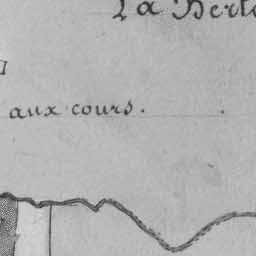 La Berl
aux cours.